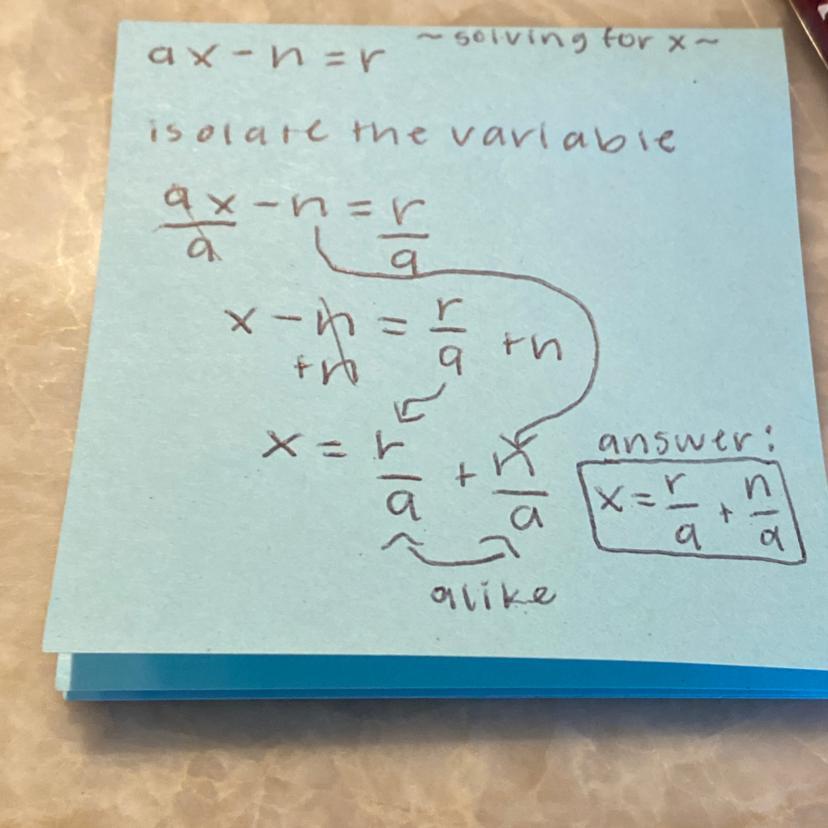 ax - n = r ~solving for x~
isolate the variable
ax/a - n = r/a
x - n = r/a + n
+n
x = r/a + n/a
answer:
x = r/a + n/a
alike